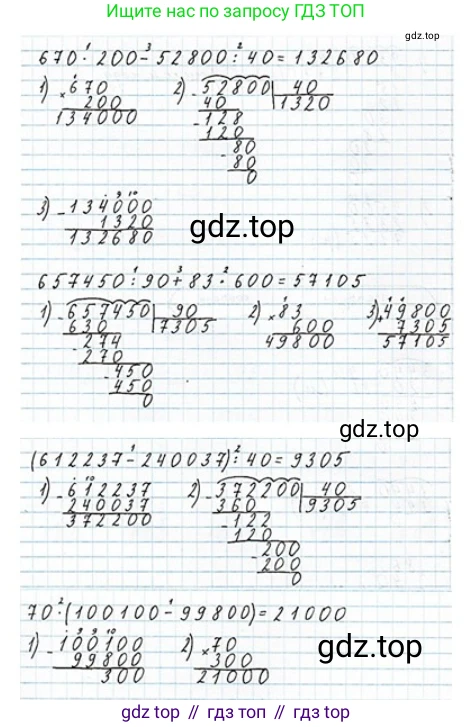 Ищите нас по запросу ГДЗ ТОП
gdz.top
670 · 200 - 52800 : 40 = 132680
1) × 670 2) - 52800 40
200 40 1320
134000 - 128
120
- 80
80
0
3) - 134000
1320
132680
gdz.top
657450 : 90 + 83 · 600 = 57105
1) - 657450 90 2) × 83 3) + 49800
630 7305 600 7305
- 274 49800 57105
270
- 450
450
0
gdz.top
(612237 - 240037) : 40 = 9305
1) - 612237 2) - 372200 40
240037 360 9305
372200 - 122
120
- 200
200
0
gdz.top
70 · (100100 - 99800) = 21000
1) - 100100 2) × 70
99800 300
300 21000
gdz.top
gdz top // гдз топ // gdz.top